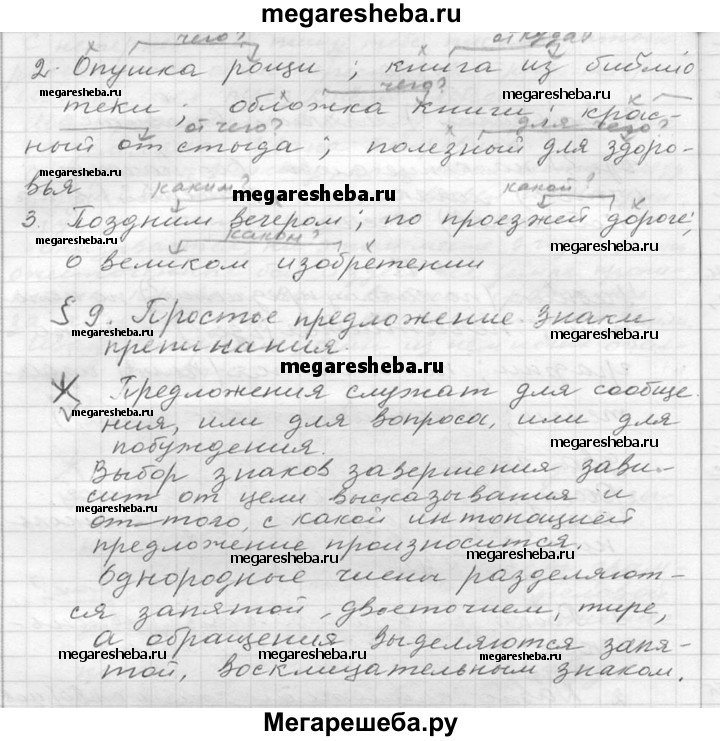 megaresheba.ru
чего? откуда?
2. Опушка рощи; книга из библио
megaresheba.ru чего? megaresheba.ru
теки; обложка книги; крас-
от чего? для чего?
ный от стыда; полезный для здоро-
вья каким? megaresheba.ru какой?
3. Поздним вечером; по проезжей дороге;
megaresheba.ru каком? megaresheba.ru
о великом изобретении
§ 9. Простое предложение. Знаки
megaresheba.ru megaresheba.ru
препинания.
megaresheba.ru
Предложения служат для сообще-
megaresheba.ru
ния, или для вопроса, или для
побуждения. megaresheba.ru
Выбор знаков завершения зави-
сит от цели высказывания и
megaresheba.ru
от того, с какой интонацией
предложение произносится.
megaresheba.ru megaresheba.ru
Однородные члены разделяют-
ся запятой, двоеточием, тире,
а обращения выделяются запя-
megaresheba.ru megaresheba.ru
той, восклицательным знаком.
Мегарешеба.ру